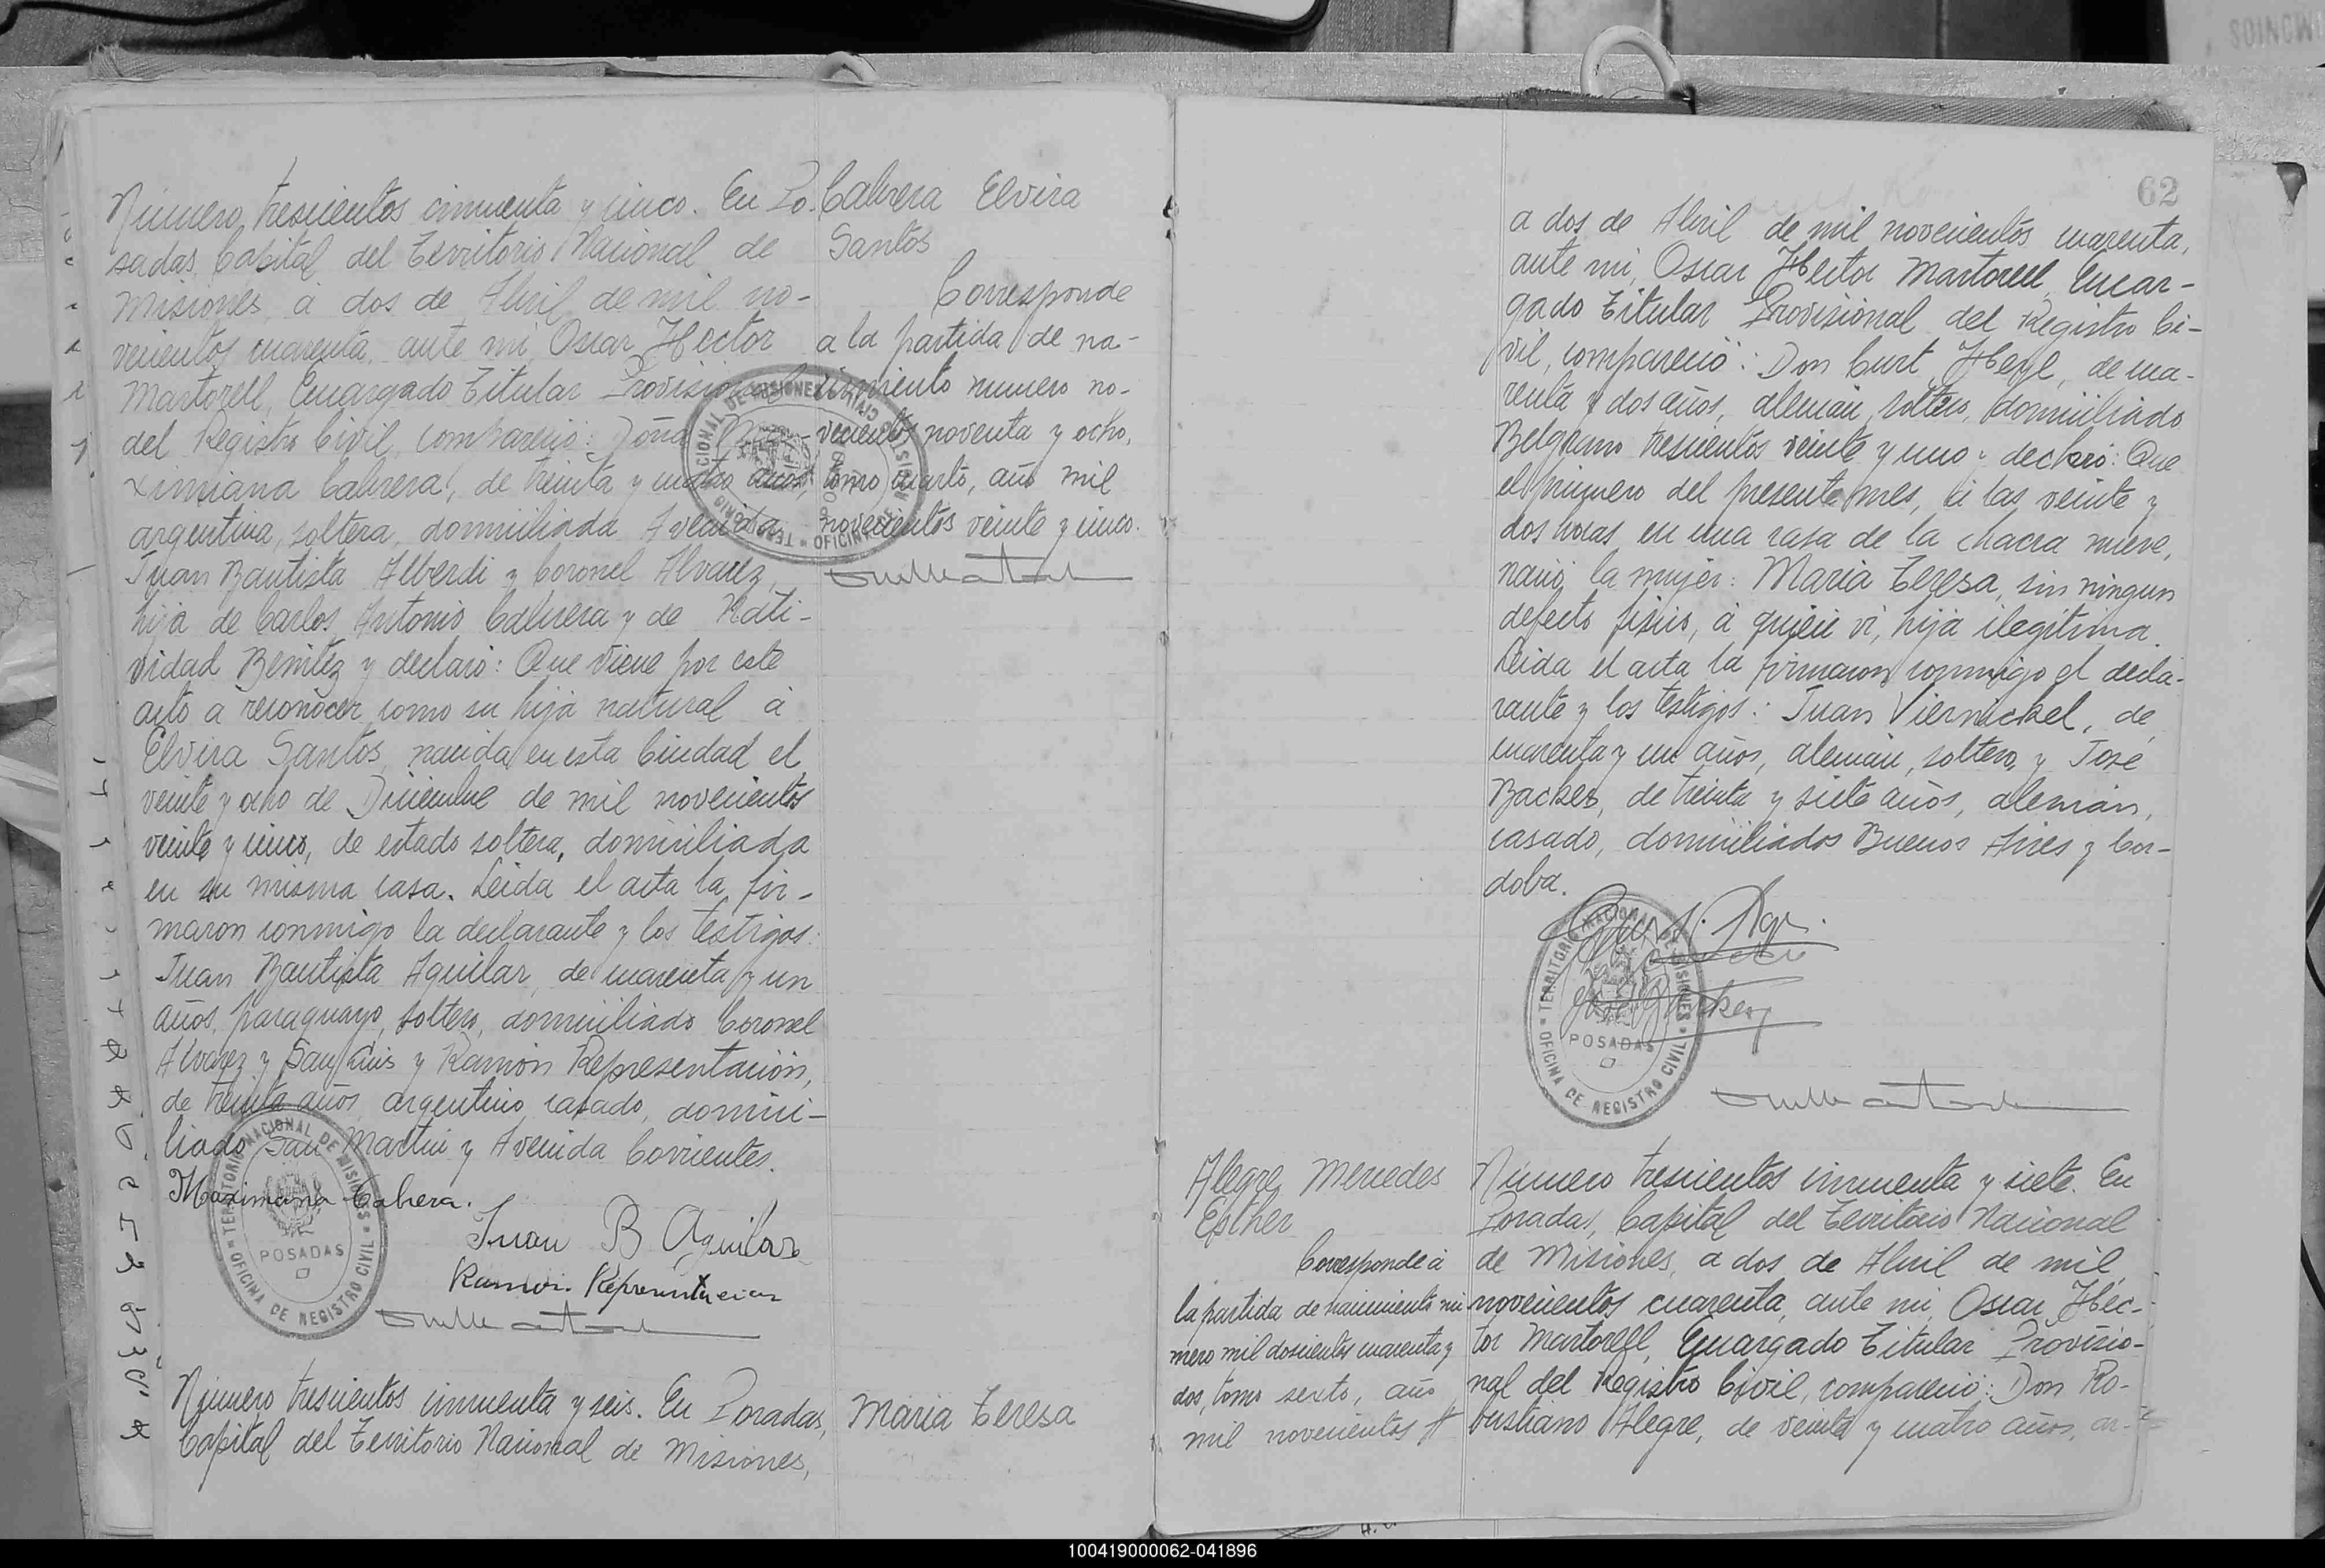 Número trescientos cincuenta y cinco. En Po-
sadas, Capital del Territorio Nacional de
Misiones, á dos de Abril de mil no-
vecientos cuarenta, ante mi, Oscar Hector
Martorell, Encargado Titular Provisional
del Registro Civil, compareció: Doña Ma-
ximiana Cabrera, de treinta y cuatro años,
argentina, soltera, domiciliada Avenida
Juan Bautista Alberdi y Coronel Alvarez,
hija de Carlos Antonio Cabrera y de Nati-
vidad Benitez y declaró: Que viene por este
acto a reconocer como su hija natural á
Elvira Santos, nacida en esta Ciudad el
veinte y ocho de Diciembre de mil novecientos
veinte y cinco, de estado soltera, domiciliada
en su misma casa. Leida el acta la fir-
maron conmigo la declarante y los testigos:
Juan Bautista Aguilar, de cuarenta y un
años, paraguayo, soltero, domiciliado Coronel
Alvarez y San Luis y Ramón Representación,
de treinta años, argentino, casado, domici-
liado San Martin y Avenida Corrientes.
Maximiana Cabrera.
Juan B Aguilar
Ramon Representacion
TERRITORIO NACIONAL DE MISIONES
POSADAS
OFICINA DE REGISTRO CIVIL
Cabrera Elvira
Santos
Corresponde
a la partida de na-
cimiento numero no-
vecientos noventa y ocho,
tomo cuarto, año mil
novecientos veinte y cinco.
Número trescientos cincuenta y seis. En Posadas,
Capital del Territorio Nacional de Misiones,
Maria Teresa
62
a dos de Abril de mil novecientos cuarenta,
ante mi, Oscar Hector Martorell, Encar-
gado Titular Provisional del Registro Ci-
vil, compareció: Don Curt Heyl, de cua-
renta y dos años, alemán, soltero, domiciliado
Belgrano trescientos veinte y uno y declaró: Que
el primero del presente mes, á las veinte y
dos horas en una casa de la chacra nueve,
nació la mujer: Maria Teresa, sin ningun
defecto fisico, á quien vi, hija ilegitima.
Leida el acta la firmaron conmigo el decla-
rante y los testigos: Juan Viernickel, de
cuarenta y un años, alemán, soltero, y José
Backes, de treinta y siete años, alemán,
casado, domiciliados Buenos Aires y Cor-
doba.
TERRITORIO NACIONAL DE MISIONES
POSADAS
OFICINA DE REGISTRO CIVIL
Alegre Mercedes
Esther
Corresponde á
la partida de nacimiento nú
mero mil doscientos cuarenta y
dos, tomo sexto, año
mil novecientos #
Número trescientos cincuenta y siete. En
Posadas, Capital del Territorio Nacional
de Misiones, a dos de Abril de mil
novecientos cuarenta, ante mi, Oscar Héc-
tor Martorell, Encargado Titular Provisio-
nal del Registro Civil, compareció: Don Ro-
bustiano Alegre, de veinte y cuatro años, ar-
100419000062-041896